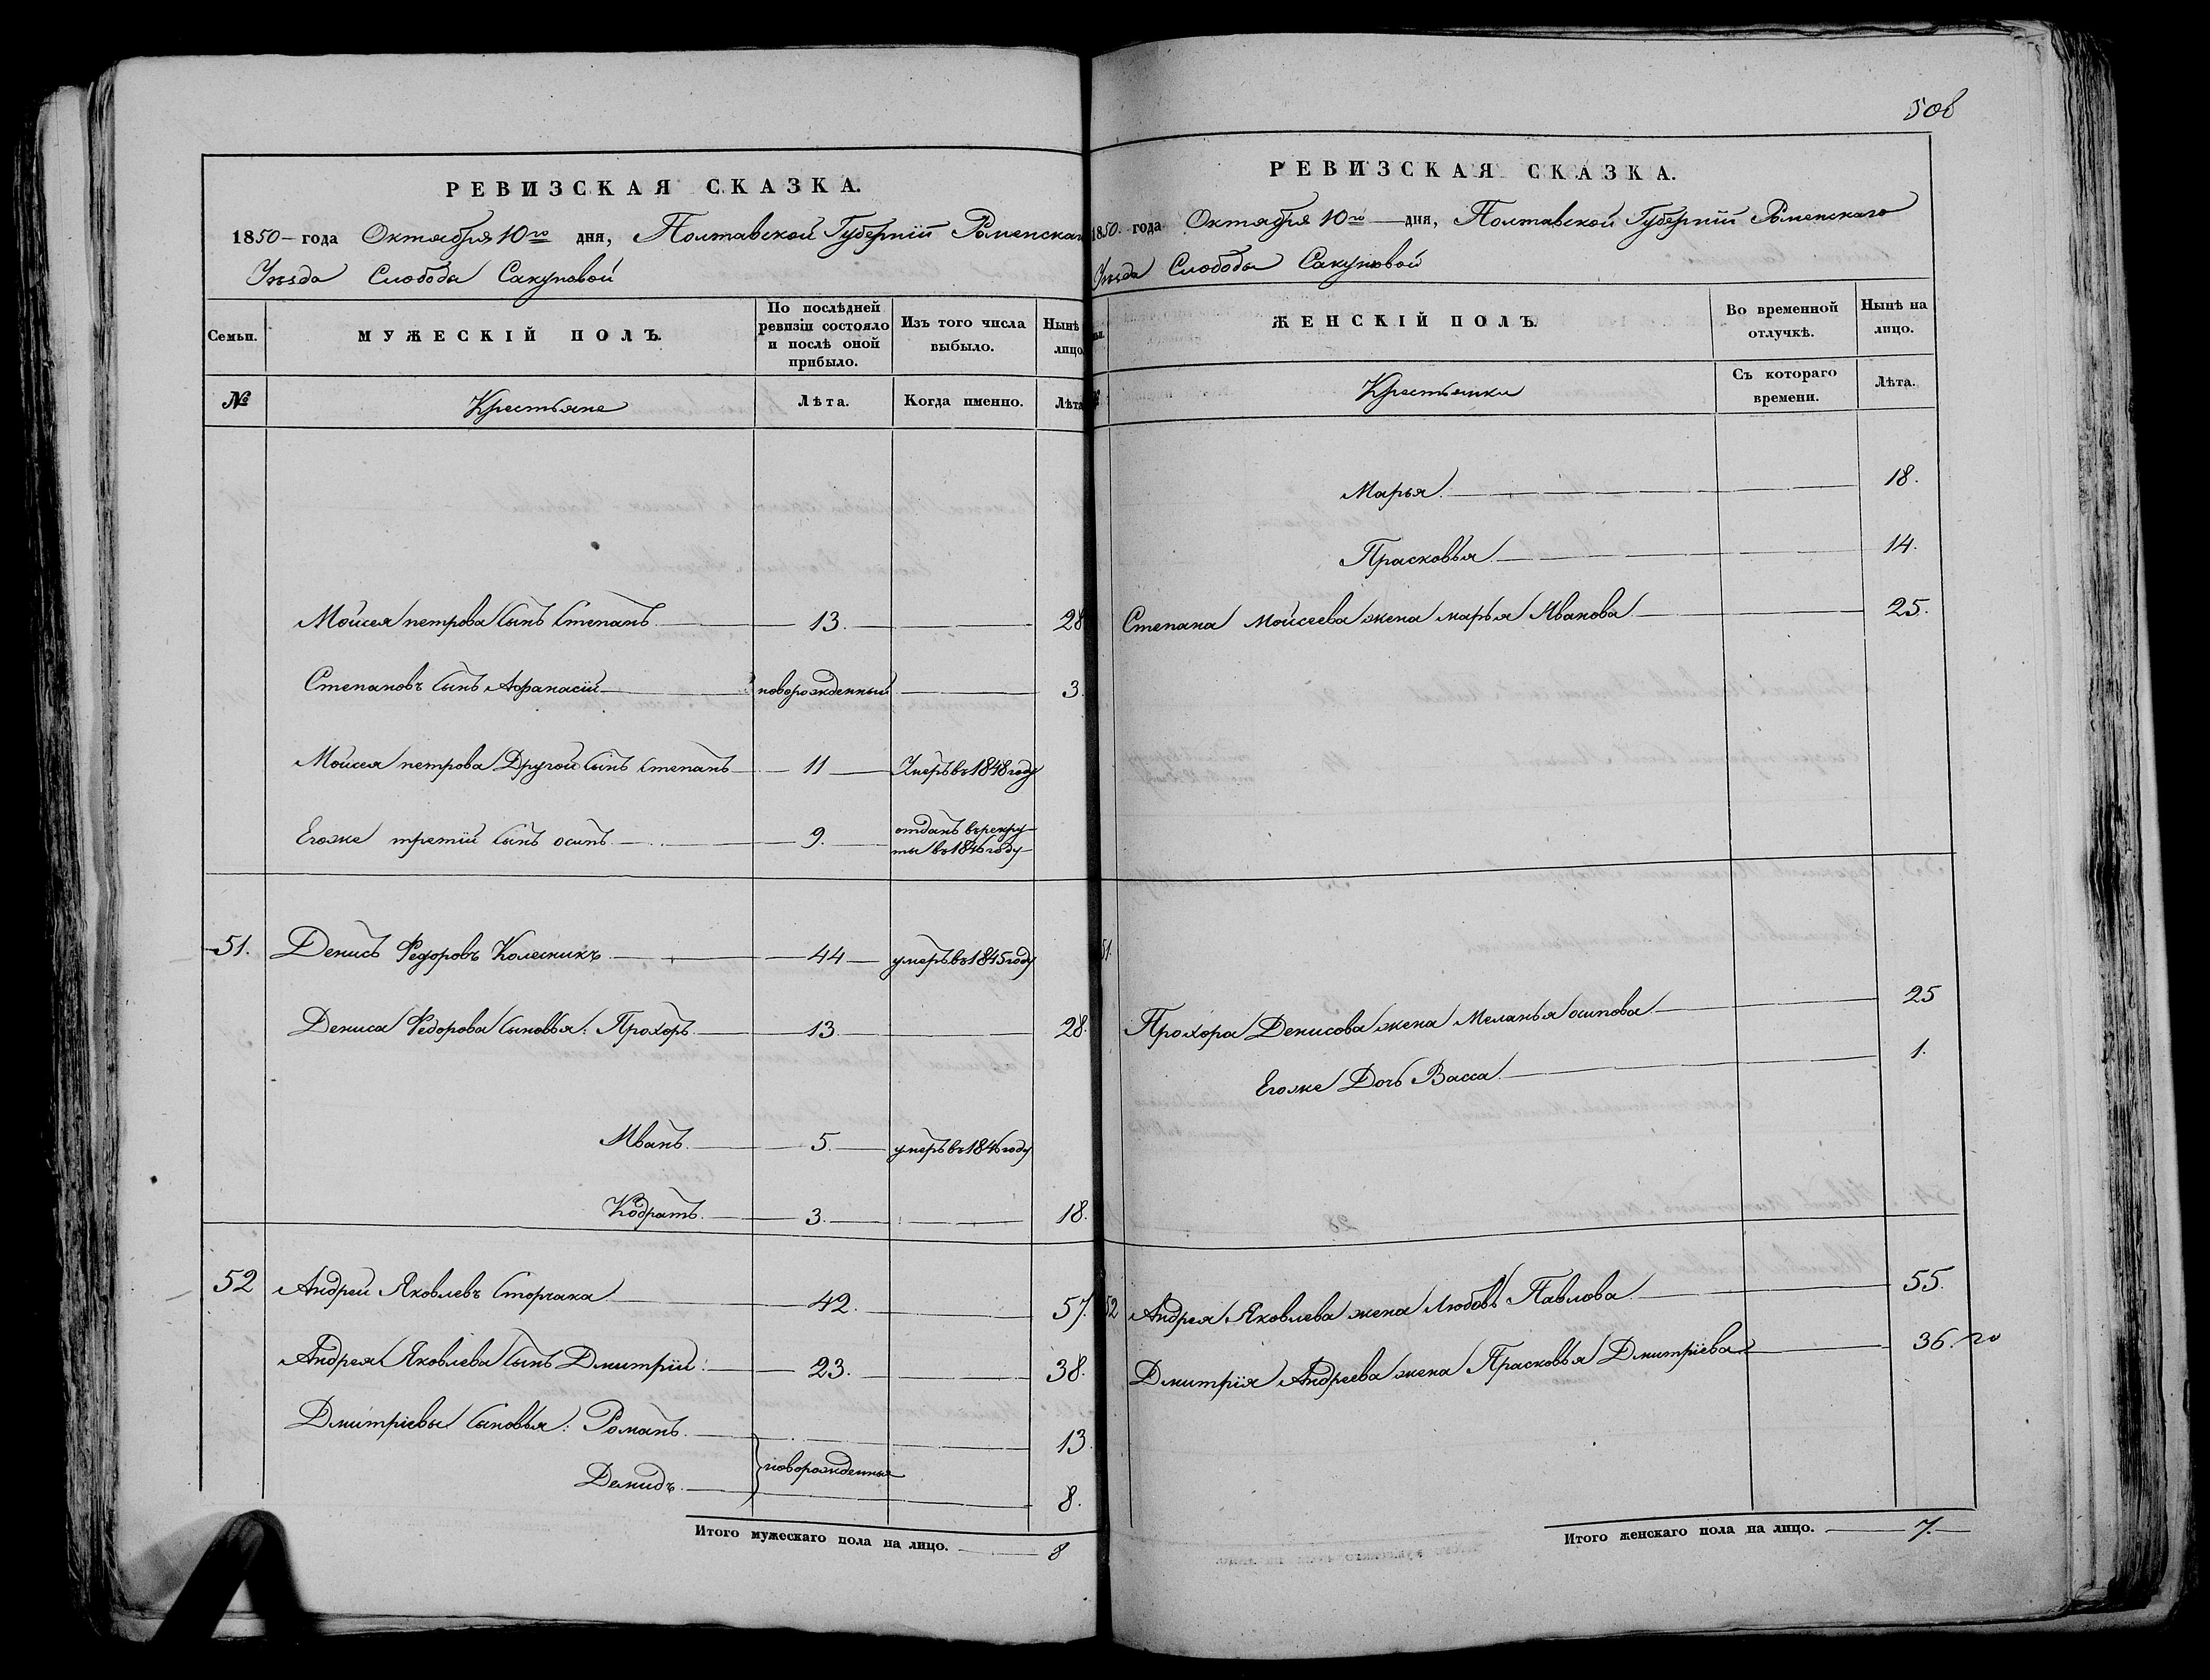 РЕВИЗСКАЯ СКАЗКА.
1850 – года Октября 10го дня, Полтавской Губерніи Роменскаго
Уезда Слободы Сакуновой
Семьи.
МУЖЕСКІЙ ПОЛЪ.
По послѣдней
ревизіи состояло
и послѣ оной
прибыло.
Изъ того числа
выбыло.
Нынѣ
лицо
№
Крестьяне
Лѣта.
Когда именно.
Лѣта
Мойсея петрова сынъ степанъ 13. 28
Степановъ сынъ Афанасій новорожденный 3.
Мойсея петрова Другой сынъ степанъ 11 Умеръ въ 1848 году
Егоже третій сынъ осипъ 9. отданъ въ рекру-
ты въ 1846 году
51. Денисъ Федоровъ Колесникъ 44 умеръ въ 1845 году
Дениса Федорова сыновья: Прохоръ 13. 28.
Иванъ 5. умеръ въ 1846 году
Кодратъ 3. 18.
52 Андрей Яковлевъ Сторчака 42. 57.
Андрея Яковлева сынъ Дмитрій 23. 38.
Дмитріевы сыновья: Романъ 13.
новорожденные
Демидъ 8.
Итого мужескаго пола на лицо. 8
508
РЕВИЗСКАЯ СКАЗКА.
1850. года Октября 10го дня, Полтавской Губерніи Роменскаго
Уезда Слободы Сакуновой
ЖЕНСКІЙ ПОЛЪ.
Во временной
отлучкѣ.
Нынѣ на
лицо.
Крестьянки
Съ котораго
времени.
Лѣта.
Марья. 18.
Прасковья 14.
Степана Мойсеева жена марья Иванова 25.
51.
Прохора Денисова жена Меланья осипова 25
Егоже Дочь Васса. 1.
52 Андрея Яковлева жена Любовь Павлова 55.
Дмитрія Андреева жена Прасковья Дмитріева 36.
Итого женскаго пола на лицо. 7.